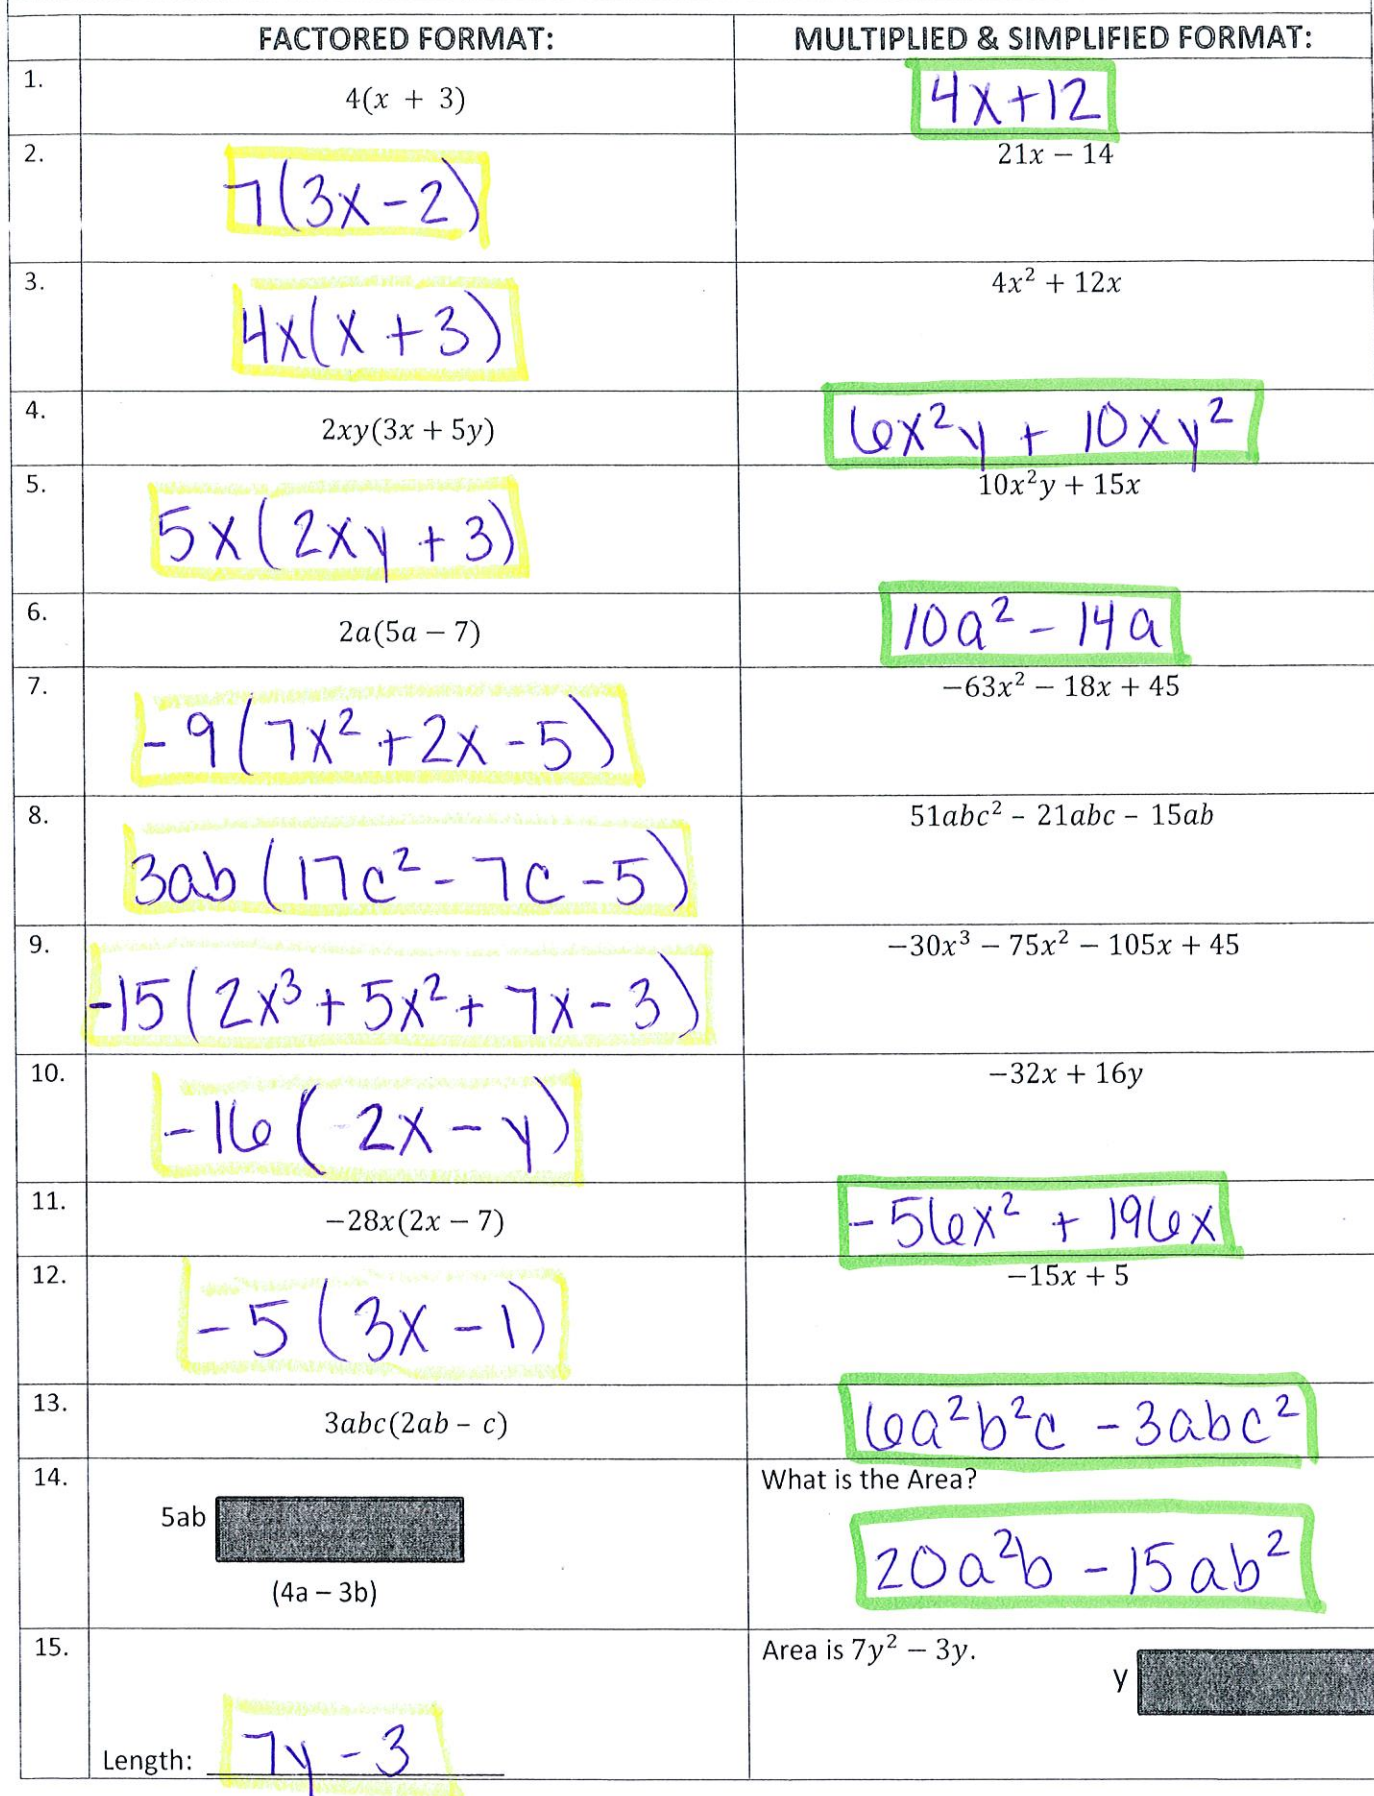 FACTORED FORMAT: MULTIPLIED & SIMPLIFIED FORMAT:
1. 4(x + 3) 4x+12
2. 7(3x-2) 21x − 14
3. 4x(x+3) 4x² + 12x
4. 2xy(3x + 5y) 6x²y + 10xy²
5. 5x(2xy+3) 10x²y + 15x
6. 2a(5a − 7) 10a² - 14a
7. -9(7x²+2x-5) −63x² − 18x + 45
8. 3ab(17c²-7c-5) 51abc² − 21abc − 15ab
9. -15(2x³+5x²+7x-3) −30x³ − 75x² − 105x + 45
10. -16(2x-y) −32x + 16y
11. −28x(2x − 7) -56x² + 196x
12. -5(3x-1) −15x + 5
13. 3abc(2ab − c) 6a²b²c - 3abc²
14. What is the Area?
5ab
(4a – 3b) 20a²b - 15ab²
15. Area is 7y² − 3y.
y
Length: 7y-3